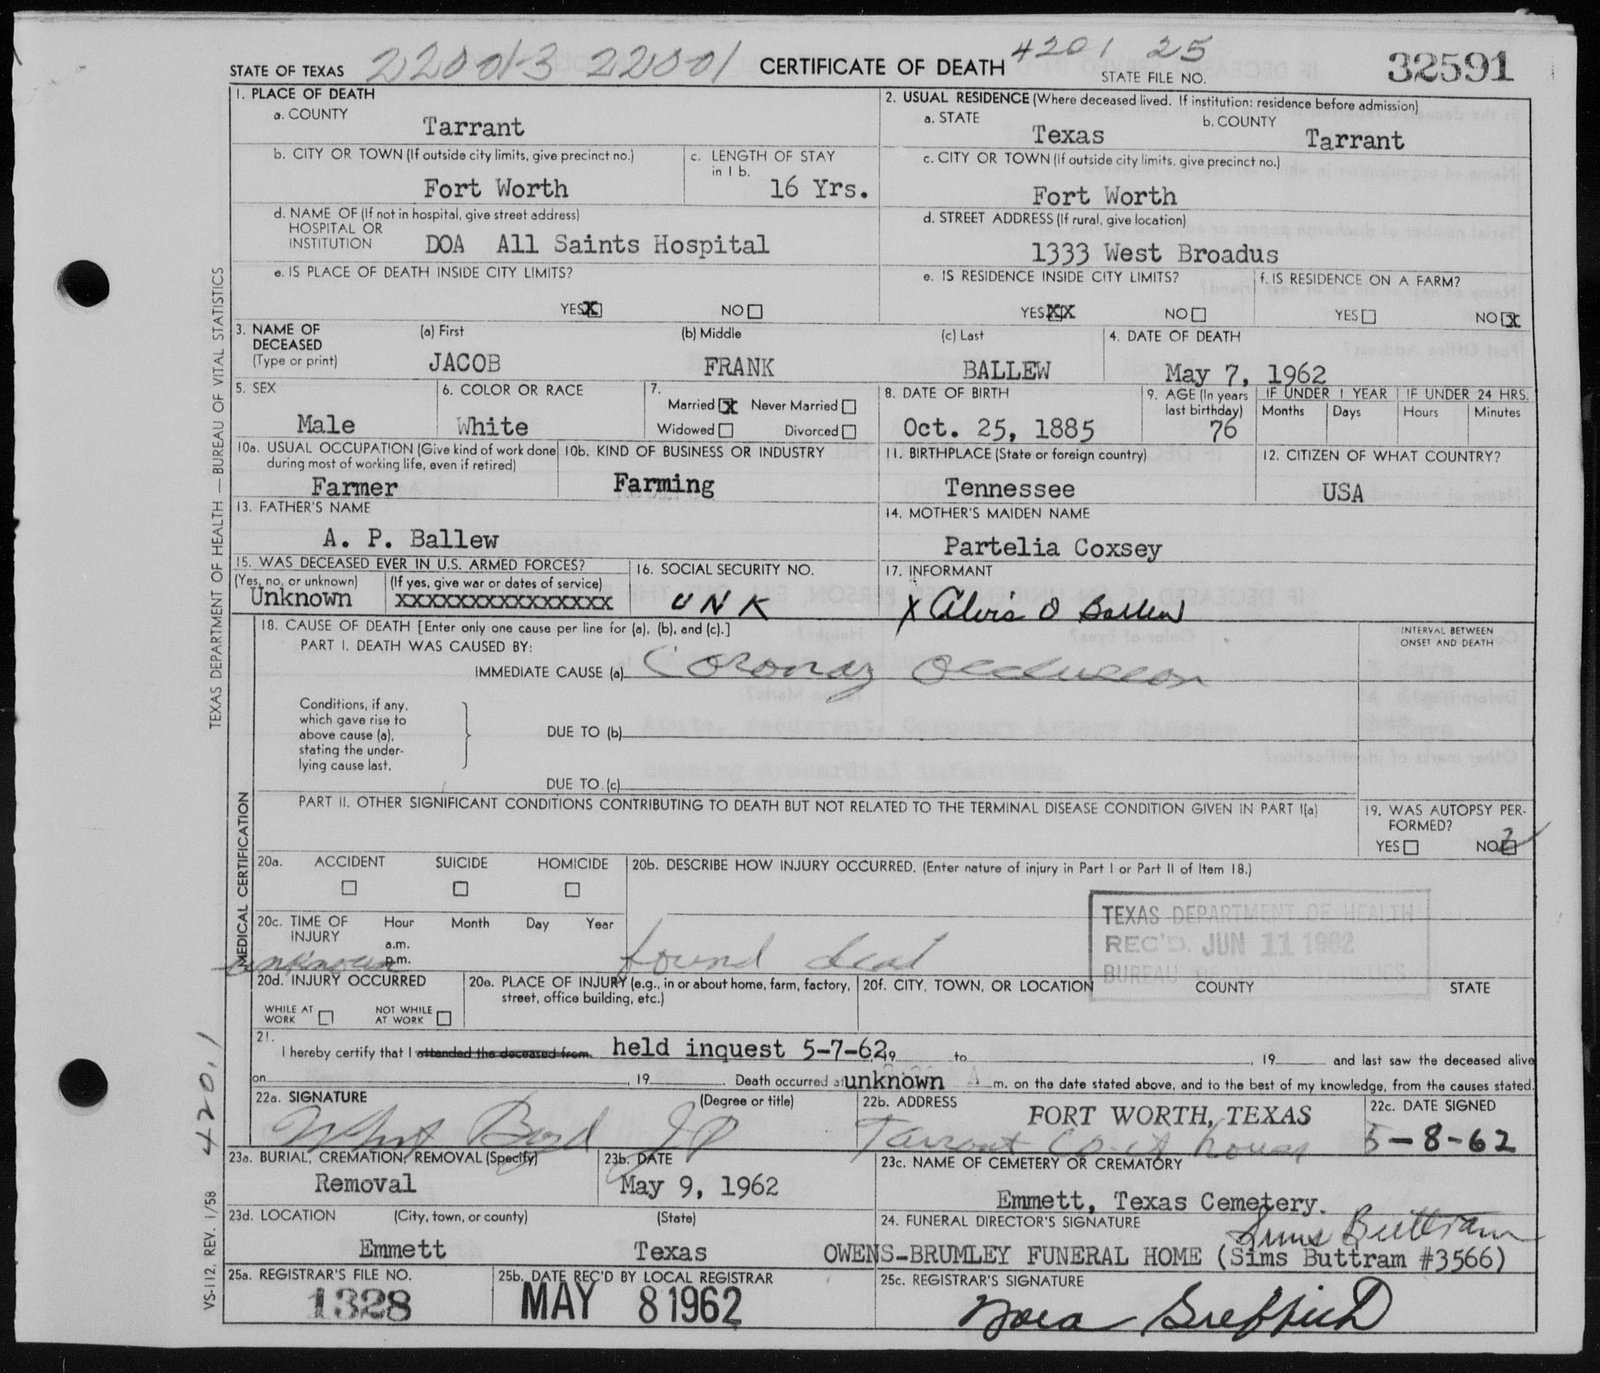 STATE OF TEXAS 220013 22001 CERTIFICATE OF DEATH 4201 25 STATE FILE NO. 32591
1. PLACE OF DEATH
a. COUNTY
Tarrant
2. USUAL RESIDENCE (Where deceased lived. If institution: residence before admission)
a. STATE Texas b. COUNTY Tarrant
b. CITY OR TOWN (If outside city limits, give precinct no.)
Fort Worth
c. LENGTH OF STAY in 1 b.
16 Yrs.
c. CITY OR TOWN (If outside city limits, give precinct no.)
Fort Worth
d. NAME OF (If not in hospital, give street address)
HOSPITAL OR
INSTITUTION DOA All Saints Hospital
d. STREET ADDRESS (If rural, give location)
1333 West Broadus
e. IS PLACE OF DEATH INSIDE CITY LIMITS?
YES X NO
e. IS RESIDENCE INSIDE CITY LIMITS?
YES XX NO
f. IS RESIDENCE ON A FARM?
YES NO X
3. NAME OF DECEASED
(Type or print)
(a) First (b) Middle (c) Last
JACOB FRANK BALLEW
4. DATE OF DEATH
May 7, 1962
5. SEX
Male
6. COLOR OR RACE
White
7.
Married X Never Married
Widowed Divorced
8. DATE OF BIRTH
Oct. 25, 1885
9. AGE (In years last birthday)
76
IF UNDER 1 YEAR
Months Days
IF UNDER 24 HRS.
Hours Minutes
10a. USUAL OCCUPATION (Give kind of work done
during most of working life, even if retired)
Farmer
10b. KIND OF BUSINESS OR INDUSTRY
Farming
11. BIRTHPLACE (State or foreign country)
Tennessee
12. CITIZEN OF WHAT COUNTRY?
USA
13. FATHER'S NAME
A. P. Ballew
14. MOTHER'S MAIDEN NAME
Partelia Coxsey
15. WAS DECEASED EVER IN U.S. ARMED FORCES?
(Yes, no, or unknown) (If yes, give war or dates of service)
Unknown XXXXXXXXXXXXXXXX
16. SOCIAL SECURITY NO.
UNK
17. INFORMANT
X Alvis O Ballew
18. CAUSE OF DEATH [Enter only one cause per line for (a), (b), and (c).]
PART I. DEATH WAS CAUSED BY:
IMMEDIATE CAUSE (a) Coronary Occlusion
INTERVAL BETWEEN
ONSET AND DEATH
Conditions, if any,
which gave rise to
above cause (a),
stating the under-
lying cause last.
DUE TO (b)
DUE TO (c)
PART II. OTHER SIGNIFICANT CONDITIONS CONTRIBUTING TO DEATH BUT NOT RELATED TO THE TERMINAL DISEASE CONDITION GIVEN IN PART I(a)
19. WAS AUTOPSY PER-
FORMED?
YES NO 2
20a. ACCIDENT SUICIDE HOMICIDE
20b. DESCRIBE HOW INJURY OCCURRED. (Enter nature of injury in Part I or Part II of Item 18.)
20c. TIME OF INJURY Hour Month Day Year
a.m.
p.m.
unknown
found dead
TEXAS DEPARTMENT OF HEALTH
REC'D. JUN 11 1962
BUREAU
20d. INJURY OCCURRED
WHILE AT WORK NOT WHILE AT WORK
20e. PLACE OF INJURY (e.g., in or about home, farm, factory,
street, office building, etc.)
20f. CITY, TOWN, OR LOCATION COUNTY STATE
21.
I hereby certify that I attended the deceased from. held inquest 5-7-62, 19 to , 19 and last saw the deceased alive
on , 19 . Death occurred at unknown m. on the date stated above, and to the best of my knowledge, from the causes stated.
22a. SIGNATURE (Degree or title)
Boyd JP
22b. ADDRESS
FORT WORTH, TEXAS
Tarrant Co. Ct house
22c. DATE SIGNED
5-8-62
23a. BURIAL, CREMATION, REMOVAL (Specify)
Removal
23b. DATE
May 9, 1962
23c. NAME OF CEMETERY OR CREMATORY
Emmett, Texas Cemetery.
23d. LOCATION (City, town, or county) (State)
Emmett Texas
24. FUNERAL DIRECTOR'S SIGNATURE
Sims Buttram
OWENS-BRUMLEY FUNERAL HOME (Sims Buttram #3566)
25a. REGISTRAR'S FILE NO.
1328
25b. DATE REC'D BY LOCAL REGISTRAR
MAY 8 1962
25c. REGISTRAR'S SIGNATURE
TEXAS DEPARTMENT OF HEALTH — BUREAU OF VITAL STATISTICS
MEDICAL CERTIFICATION
4201
VS-112, REV. 1/58